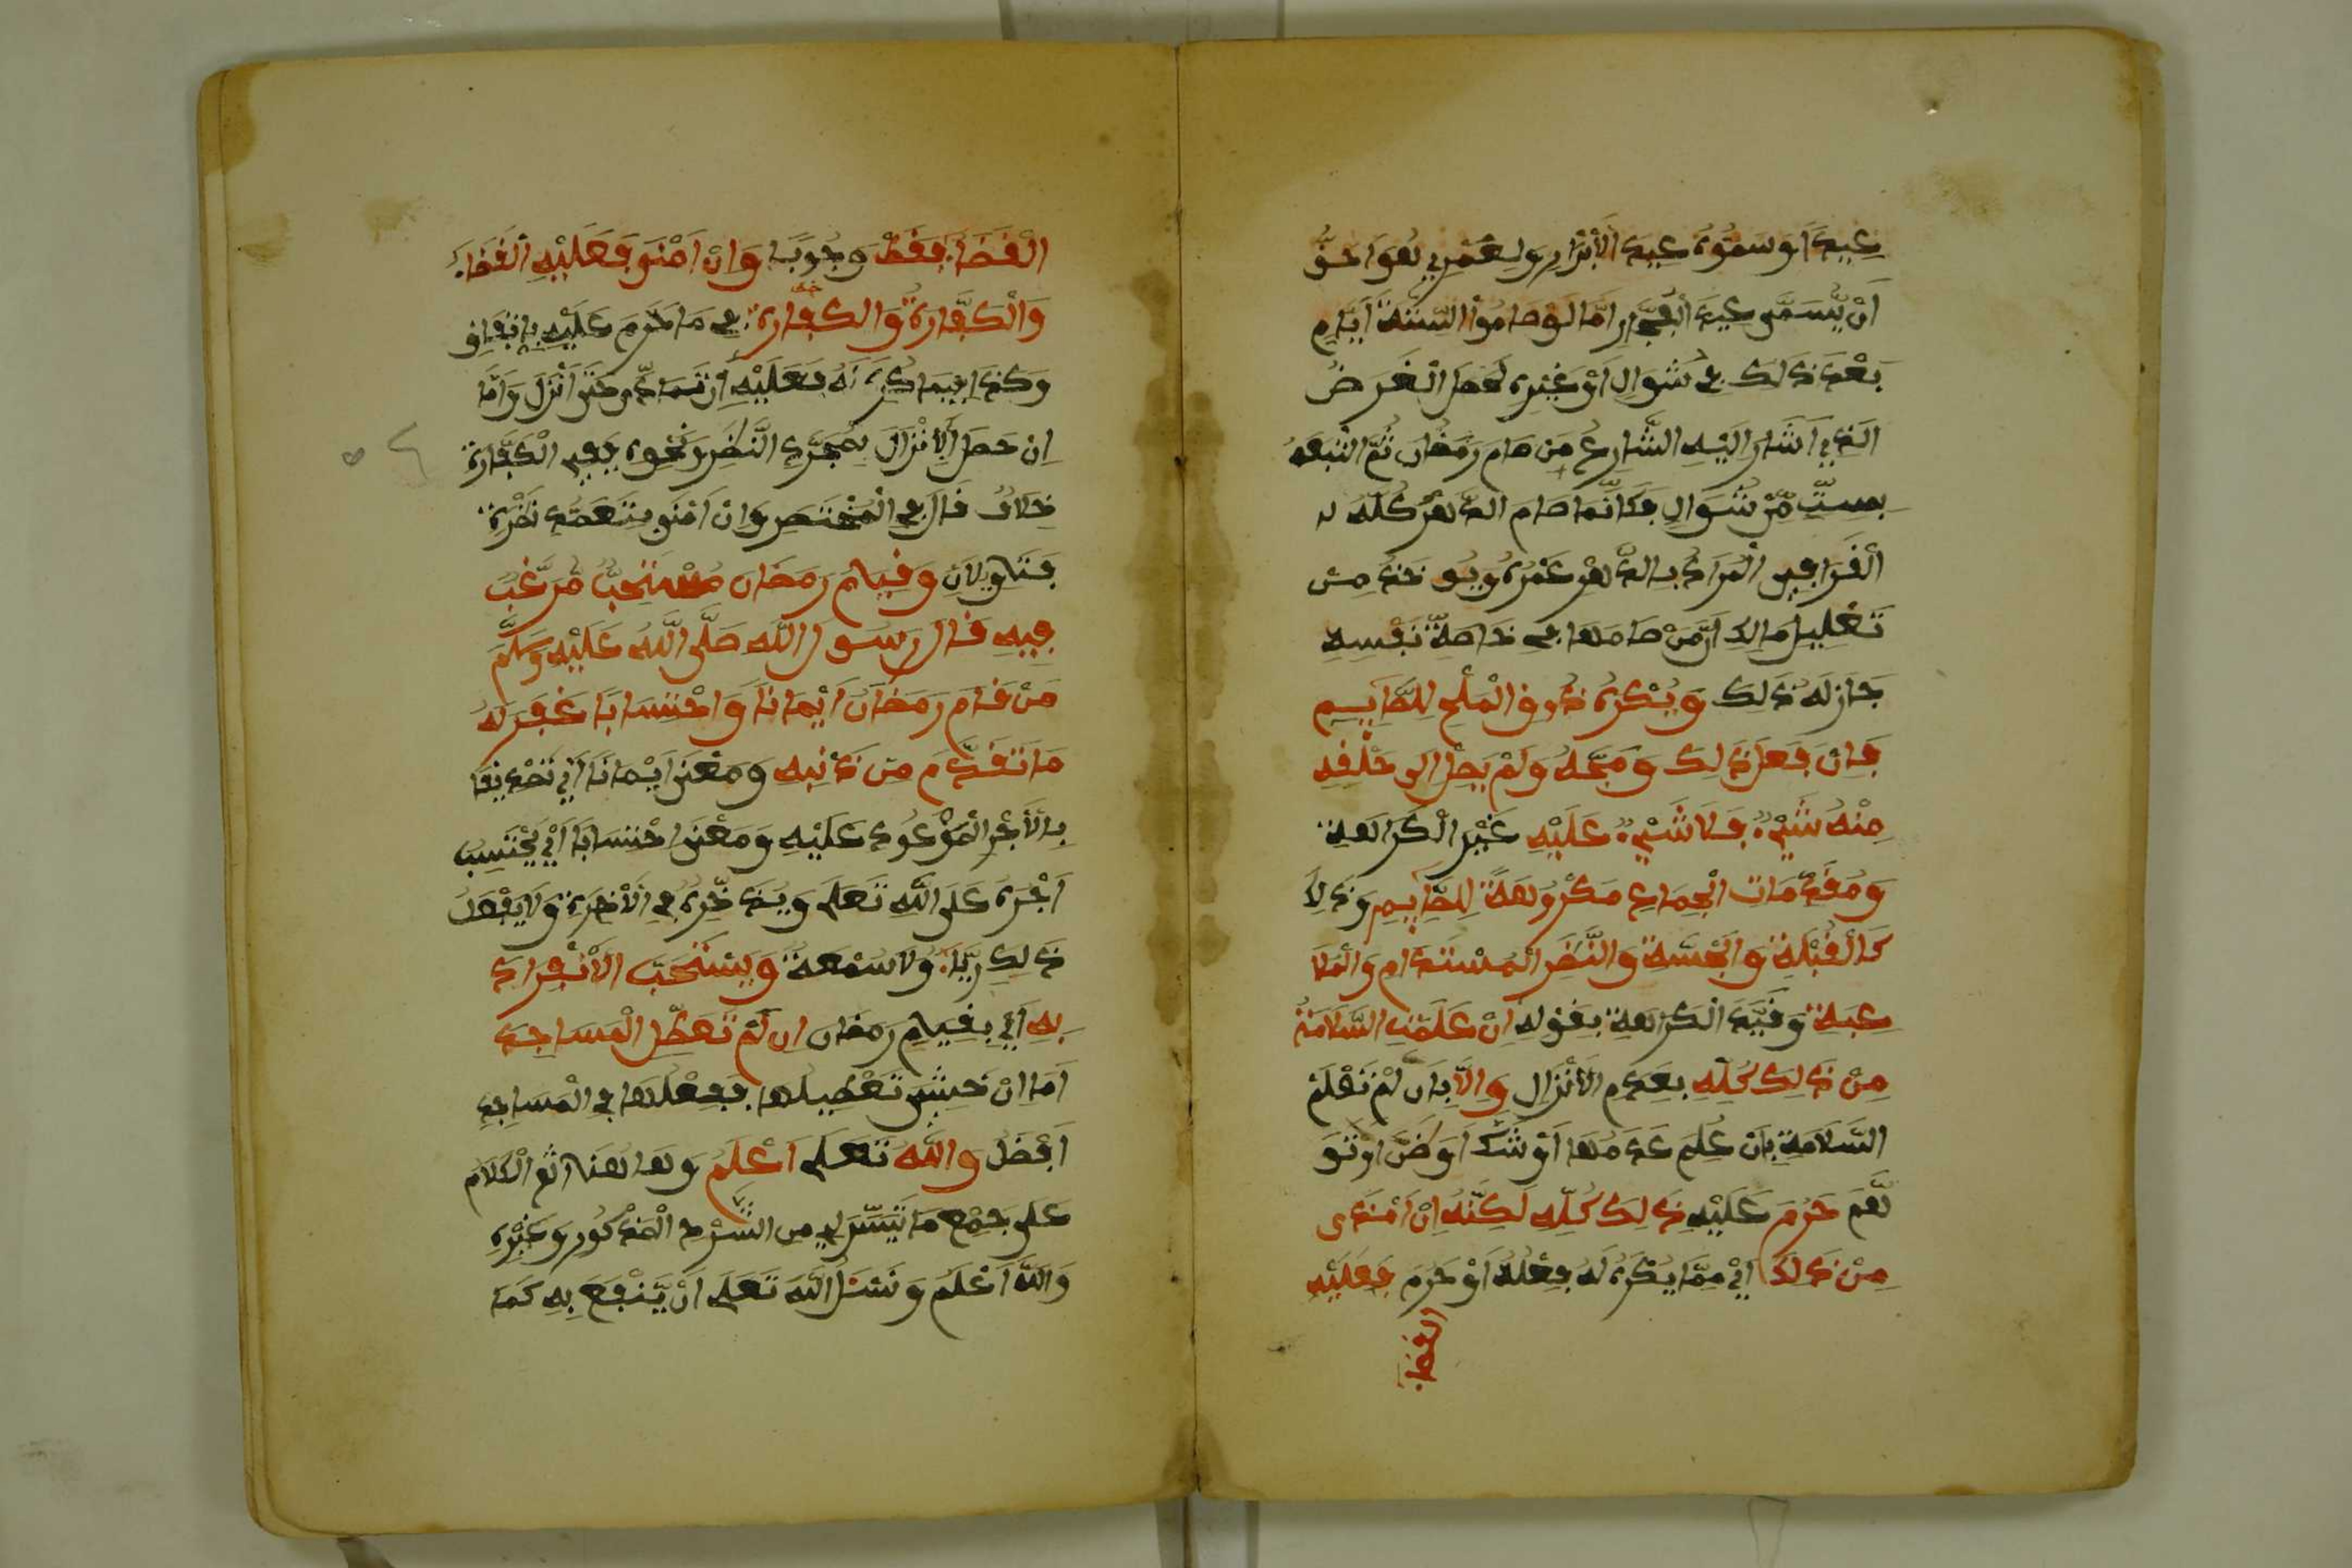 عيدا وسموه عيد الأبرار ولعمري لهو احق
أن يسمى عيد الفجار اما لو صاموا الستة أيام
بعد ذلك في شوال أو غيره لحصل الغرض
الذي اشار اليه الشارع من صام رمضان ثم اتبعه
بست من شوال فكأنما صام الدهر كله
القرافي المراد بالدهر عمره ويوخذ من
تعليل مالك أن من صامها في خاصة نفسه
جاز له ذلك ويكره ذوق الملح للصايم
فإن فعل ذلك ومجه ولم يصل الى حلقه
منه شيء فلا شيء عليه غير الكراهة
ومقدمات الجماع مكروهة للصايم وذلا
كالقبلة والجسة والنظر المستدام والملا
عبة وقيد الكراهة بقوله ان علمت السلامة
من ذلك كله بعدم الأنزال وإلا بان لم تعلم
السلامة بان علم عدمها أو شك او ظن او تو
هم حرم عليه ذلك كله لكنه إن امذى
من ذلك اي مما يكره له فعله أو حرم فعليه
القضا
القضاء فقط وجوبا وان امنى فعليه القضاء
والكفارة والكفارة في ما حرم عليه باتفاق
وكذا فيما كره له فعليه أن تمادى حتى أنزل واما
ان حصل الأنزال بمجرد النظر ونحوه ففي الكفارة
خلاف قال في المختصر وان امنى بتعمد نظرة
فتاويلان وقيام رمضان مستحب مرغب
فيه قال رسول الله صلى الله عليه وسلم
من قام رمضان أيمانا واحتسابا غفر له
ما تقدم من ذنبه ومعنى ايمانا اي تصديقا
بالأجر الموعود عليه ومعنى احتسابا أي يحتسب
أجره على الله تعلى ويدخره في الأخرة ولا يفعل
ذلك رياء ولا سمعة ويستحب الأنفراد
به اي بقيام رمضان ان لم تعطل المساجد
اما ان خشي تعطيلها ففعلها في المساجد
افضل والله تعلى اعلم وها هنا الكلام
على جمع ما تيسر لي من الشرح المذكور وغيره
والله أعلم ونسئل الله تعلى أن ينفع به كما